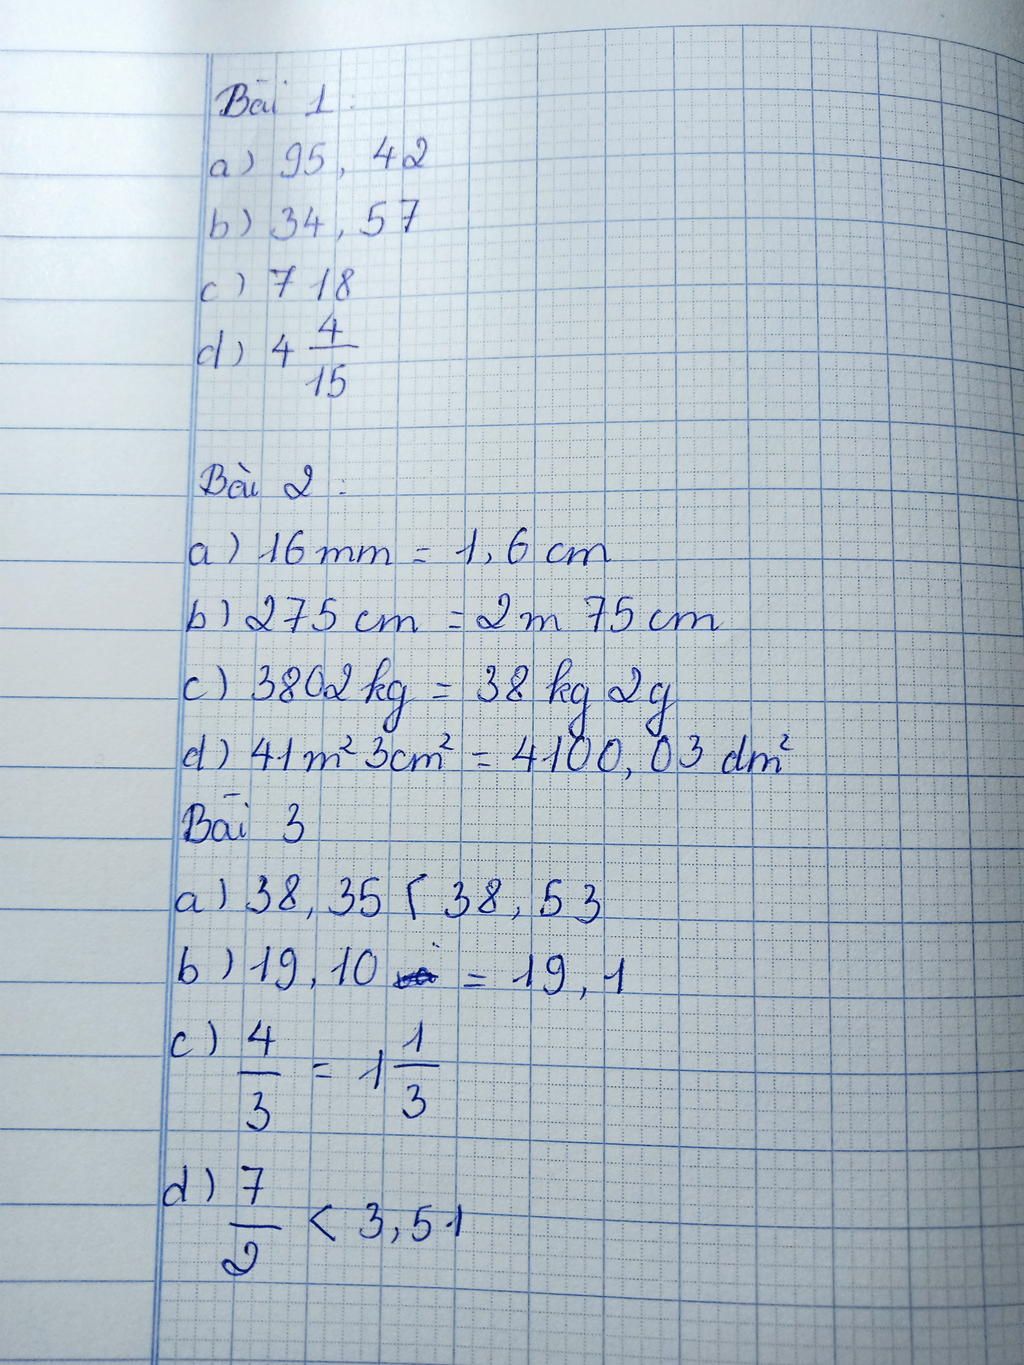 Bài 1:
a) 95,42
b) 34,57
c) 718
d) 4 4/15
Bài 2:
a) 16mm = 1,6 cm
b) 275 cm = 2m 75 cm
c) 3802 kg = 38 kg 2g
d) 41m² 3cm² = 4100,03 dm²
Bài 3
a) 38,35 < 38,53
b) 19,10 = 19,1
c) 4/3 = 1 1/3
d) 7/2 < 3,51